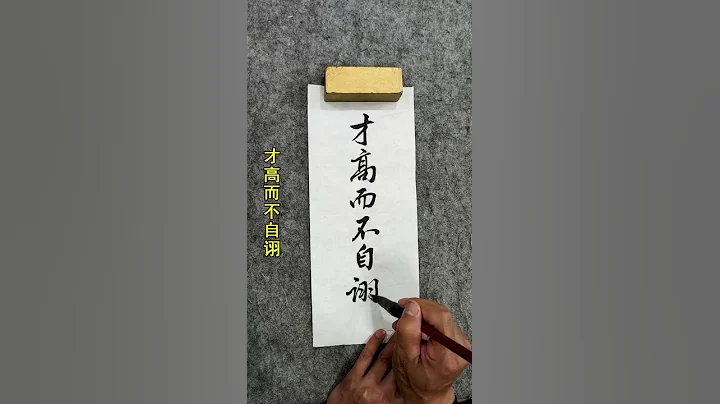 才高而不自诩
才高而不自詡